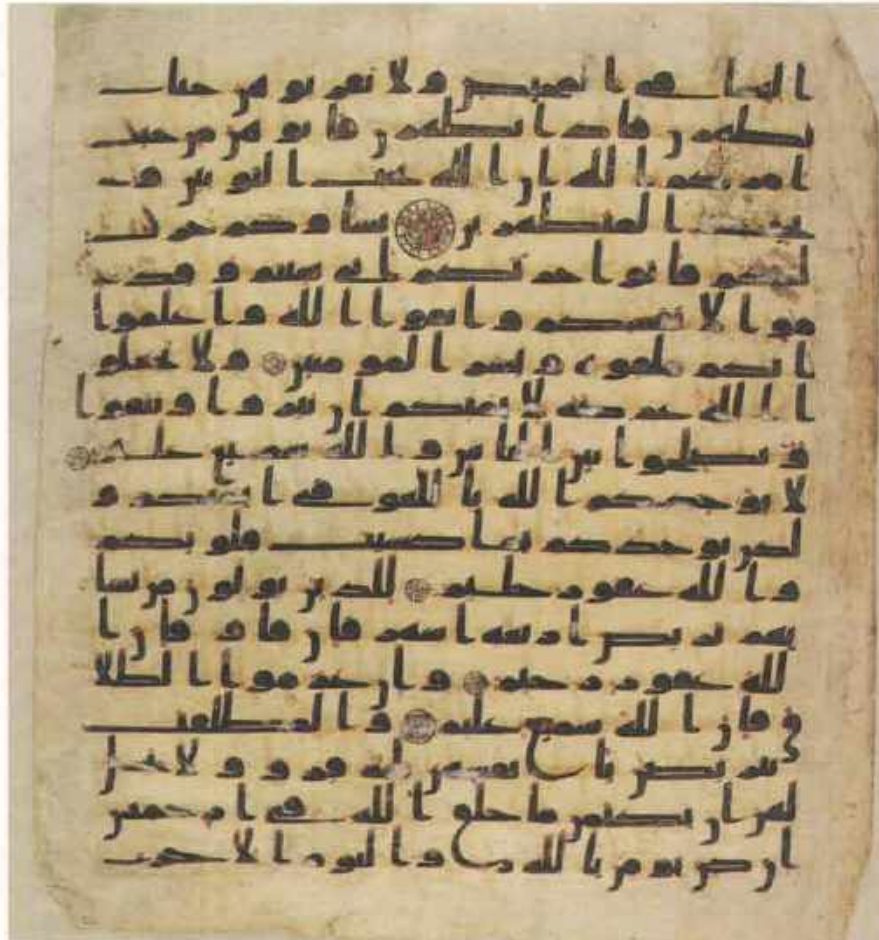 النسا فى المحيض ولا تقربوهن حتى
يطهرن فاذا تطهرن فاتوهن من حيث
امركم الله ان الله يحب التوبين و
يحب المتطهرين نساوكم حرث
لكم فاتوا حرثكم انى شئتم وقد
موا لانفسكم واتقوا الله واعلموا
انكم ملقوه وبشر المومنين ولا تجعلو
ا الله عرضة لايمنكم ان تبروا وتتقوا
وتصلحوا بين الناس والله سميع عليم
لا يواخذكم الله باللغو فى ايمنكم و
لكن يواخذكم بما كسبت قلوبكم
والله غفور حليم للذين يولون من نسا
يهم تربص اربعة اشهر فان فاو فان ا
لله غفور رحيم وان عزموا الطلا
ق فان الله سميع عليم والمطلقت
يتربصن بانفسهن ثلثة قرو ولا يحل
لهن ان يكتمن ما خلق الله فى ارحمهن
ان كن يومن بالله واليوم الاخر